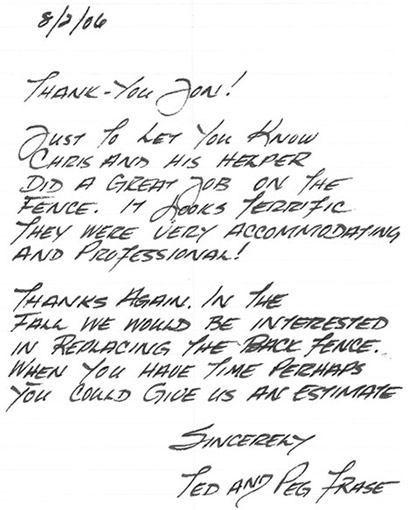 8/2/06
THANK-YOU JON!
JUST TO LET YOU KNOW
CHRIS AND HIS HELPER
DID A GREAT JOB ON THE
FENCE. IT LOOKS TERRIFIC
THEY WERE VERY ACCOMMODATING
AND PROFESSIONAL!
THANKS AGAIN. IN THE
FALL WE WOULD BE INTERESTED
IN REPLACING THE BACK FENCE.
WHEN YOU HAVE TIME PERHAPS
YOU COULD GIVE US AN ESTIMATE
SINCERELY
TED AND PEG FRASE